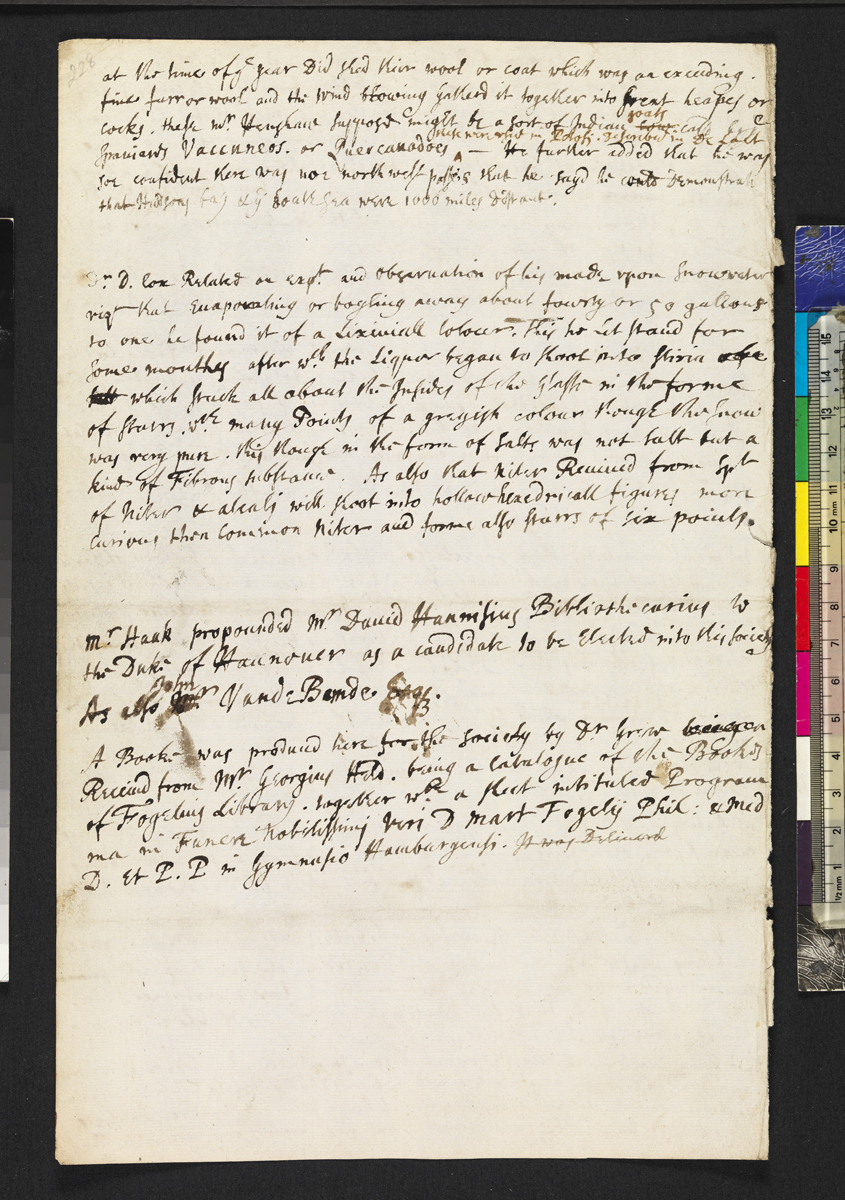 228
at the time of ye year Did shed their wool or coat which was an exceeding
fine furr or wool and the wind blowing gatherd it together into great heapes or
cocks. these mr Henshaw supposd might be a sort of Indian goats
Spaniards Vacunneos. or
— He further added that he was
soe confident there was noe northwest passag that he sayd he could Demonstrate
that Hudsons bay & ye South sea were 1000 miles Distant.
Dr. D. Cox Related an expt. and observation of his made upon snow water
vizt that Evaporating or boyling away about fowrty or 50 gallons
to one he found it of a Lixiviall Colour. This he let stand for
some monthes after wch the Liquor began to shoot into stiria
which stuck all about the Insides of the Glasse in the forme
of starrs. wth many Points of a greyish colour though the snow
was very pure. this though in the form of salts was not salt but a
kind of Fibrous substance. As also that Niter Revived from Spt
of Niter & alcali will shoot into hollow hexedricall figures more
Curious then Common Niter and forme also starrs of six points.
mr. Haak propounded mr David Hannisius Bibliothecarius to
the Duke of Hannover as a candidate to be Elected into this society
As also John Vande Bemde Esqr.
A Booke was produced here for the society by Dr Grew
Received from mr Georgius Held. being a Catalogue of the Bookes
of Fogelius Library. together wth a sheet intituled Program
ma in Funere Nobilissimj Veri D Mart Fogelij Phil: & Med
D. Et P. P in Gymnasio Hamburgensi. It was Delivered